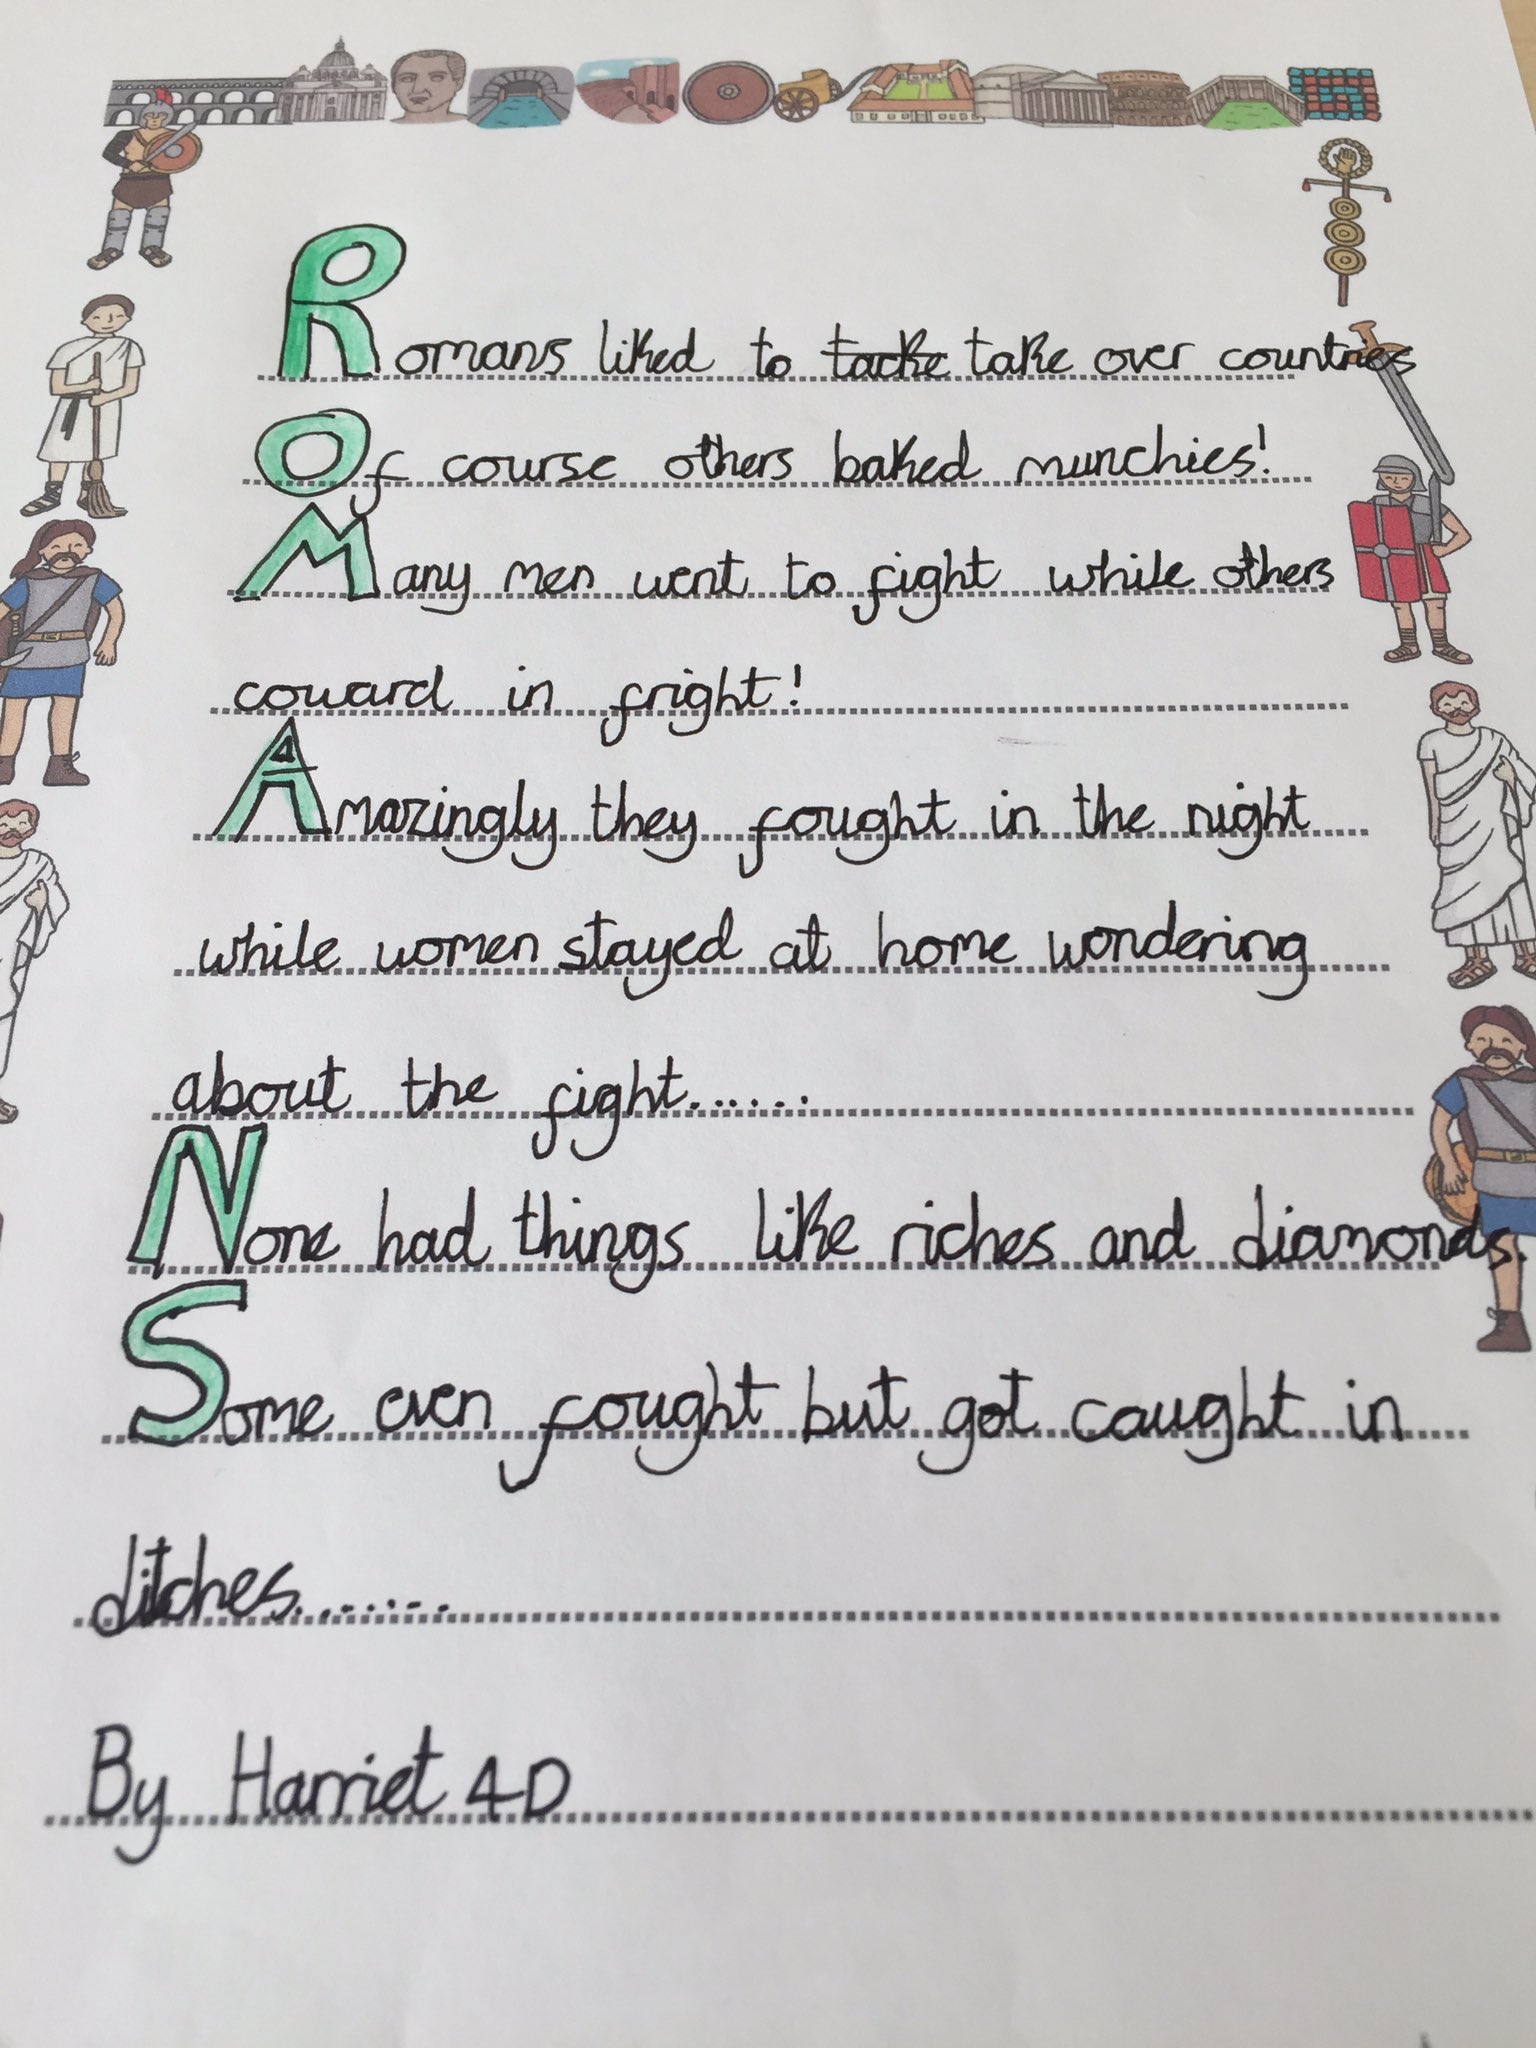 Romans liked to tacke take over countries
Of course others baked munchies!
Many men went to fight while others
coward in fright!
Amazingly they fought in the night
while women stayed at home wondering
about the fight......
None had things like riches and diamonds.
Some even fought but got caught in
ditches.......
By Harriet 4D